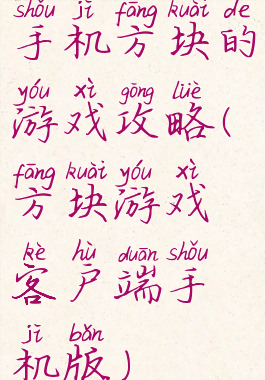 shǒu jī fāng kuài de
手机方块的
yóu xì gōng lüè
游戏攻略(
fāng kuài yóu xì
方块游戏
kè hù duān shǒu
客户端手
jī bǎn
机版)